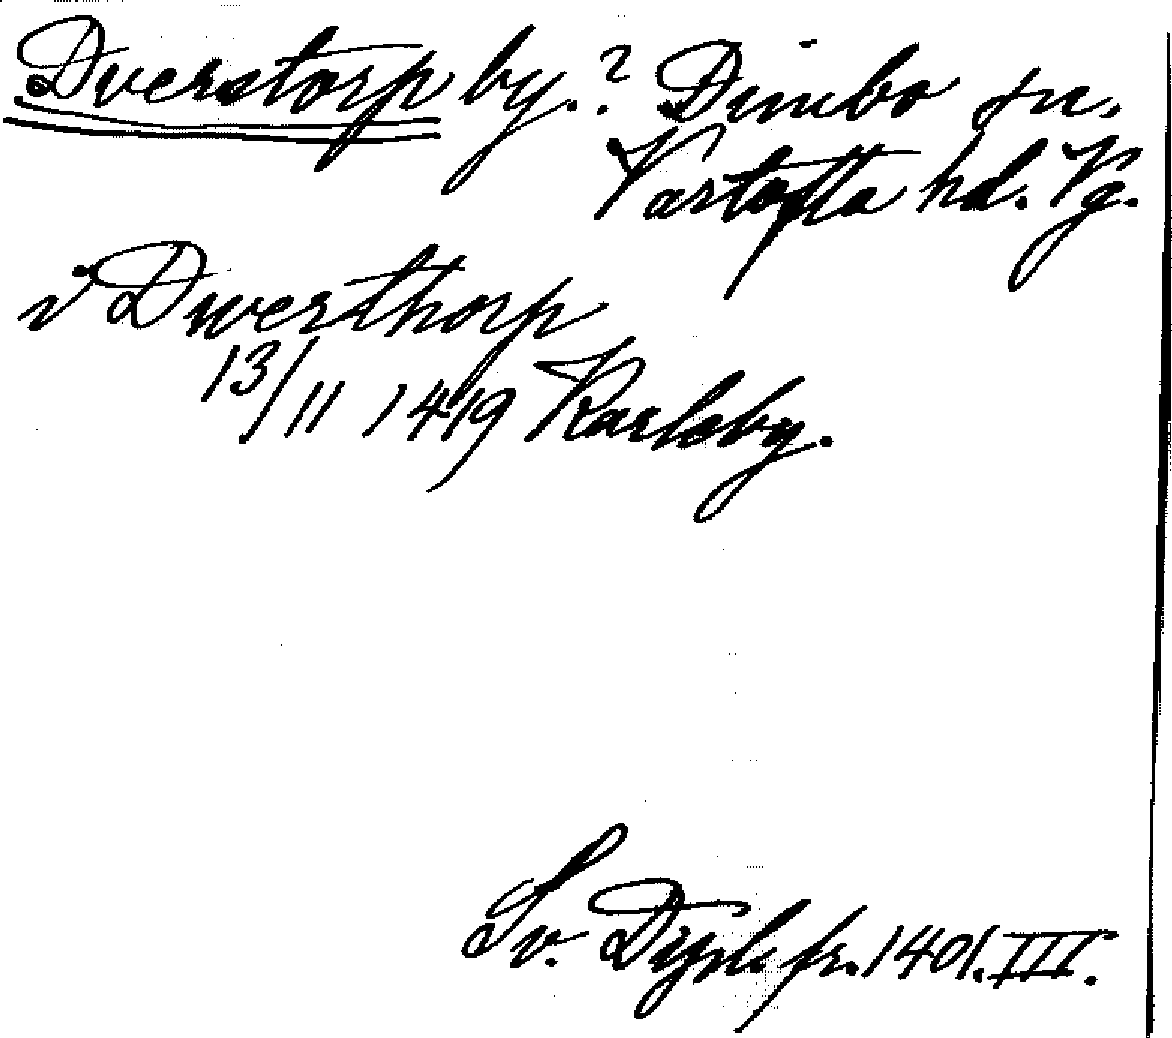 Dverstorp by.? Dimbo sn.
Vartofta hd. Vg.
i Dwersthorp
13/11 1419 Karleby.
Sv. Dipl. fr. 1401. III.